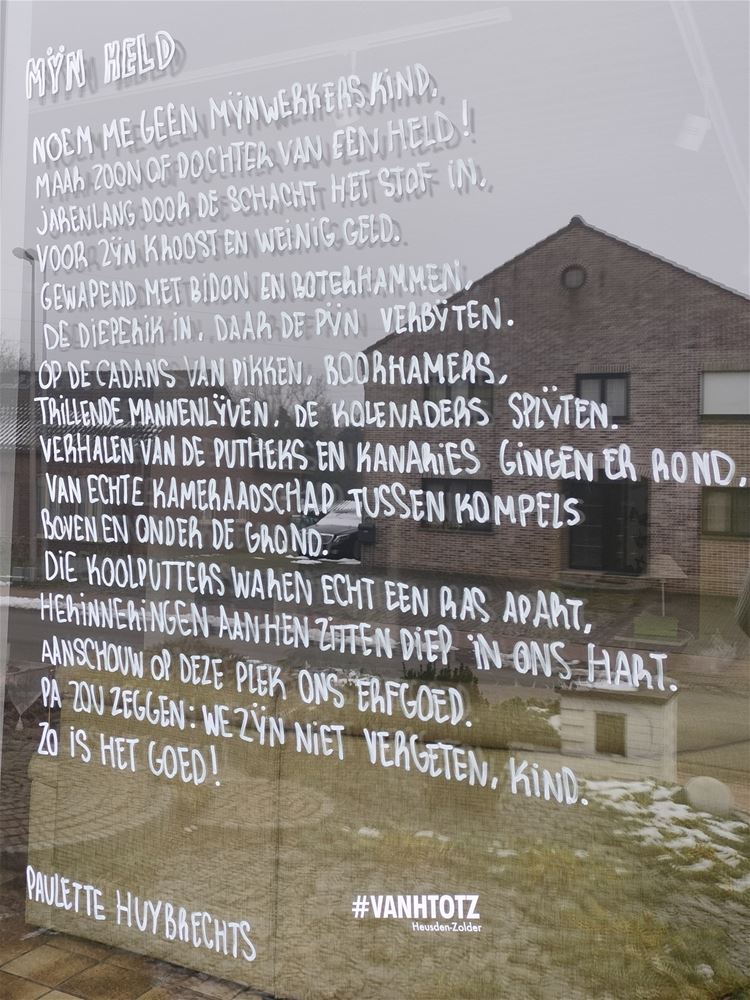 MŸN HELD
NOEM ME GEEN MŸNWERKERSKIND,
MAAR ZOON OF DOCHTER VAN EEN HELD!
JARENLANG DOOR DE SCHACHT HET STOF IN,
VOOR ZŸN KROOST EN WEINIG GELD.
GEWAPEND MET BIDON EN BOTERHAMMEN,
DE DIEPERIK IN, DAAR DE PŸN VERBŸTEN.
OP DE CADANS VAN PIKKEN, BOORHAMERS,
TRILLENDE MANNENLŸVEN, DE KOLENADERS SPLŸTEN.
VERHALEN VAN DE PUTHEKS EN KANARIES GINGEN ER ROND,
VAN ECHTE KAMERAADSCHAP TUSSEN KOMPELS
BOVEN EN ONDER DE GROND.
DIE KOOLPUTTERS WAREN ECHT EEN RAS APART,
HERINNERINGEN AAN HEN ZITTEN DIEP IN ONS HART.
AANSCHOUW OP DEZE PLEK ONS ERFGOED.
PA ZOU ZEGGEN: WE ZŸN NIET VERGETEN, KIND.
ZO IS HET GOED!
PAULETTE HUYBRECHTS
#VANHTOTZ
Heusden-Zolder